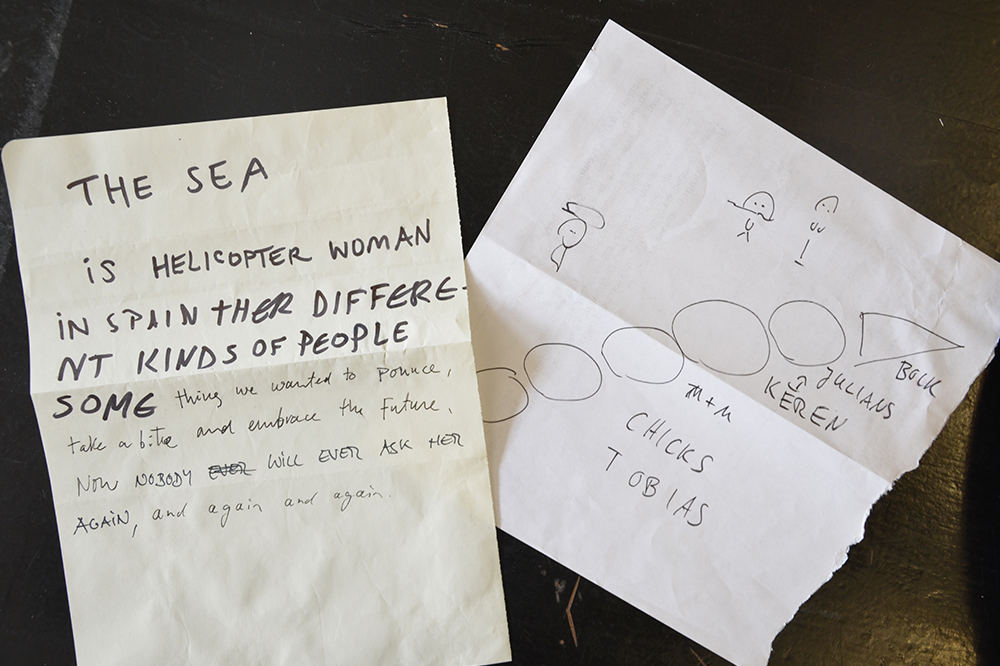 THE SEA
iS HELICOPTER WOMAN
iN SPAIN THER DIFFERE-
NT KINDS OF PEOPLE
SOME thing we wanted to pounce,
take a bite and embrace the future.
Now NOBODY EVER WILL EVER ASK HER
AGAIN, and again and again.
m+m
KEREN
JULIANS
BOCK
CHICKS
TOBIAS